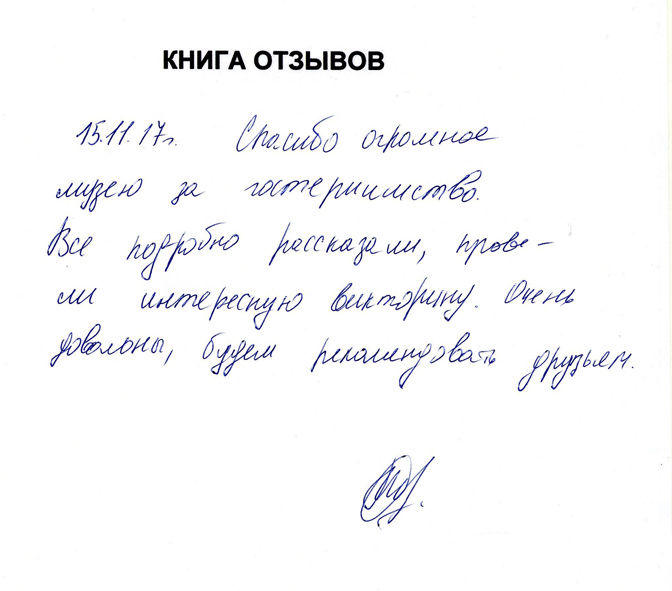 КНИГА ОТЗЫВОВ
15.11.17г. Спасибо огромное
музею за гостериимство.
Все подробно рассказали, прове-
ли интересную викторину. Очень
довольны, будем рекомендовать друзьям.